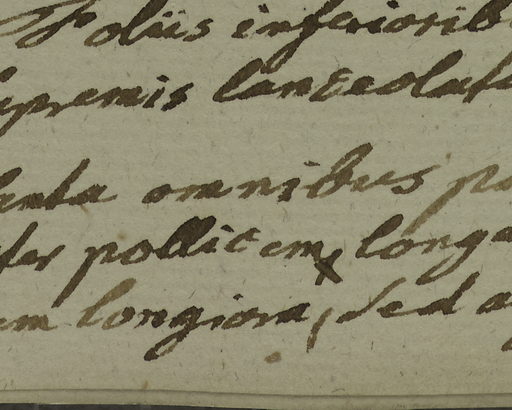 Foliis inferiorib
supremis lanceolat
omnibus
pollicem, longa
longiora, sed a